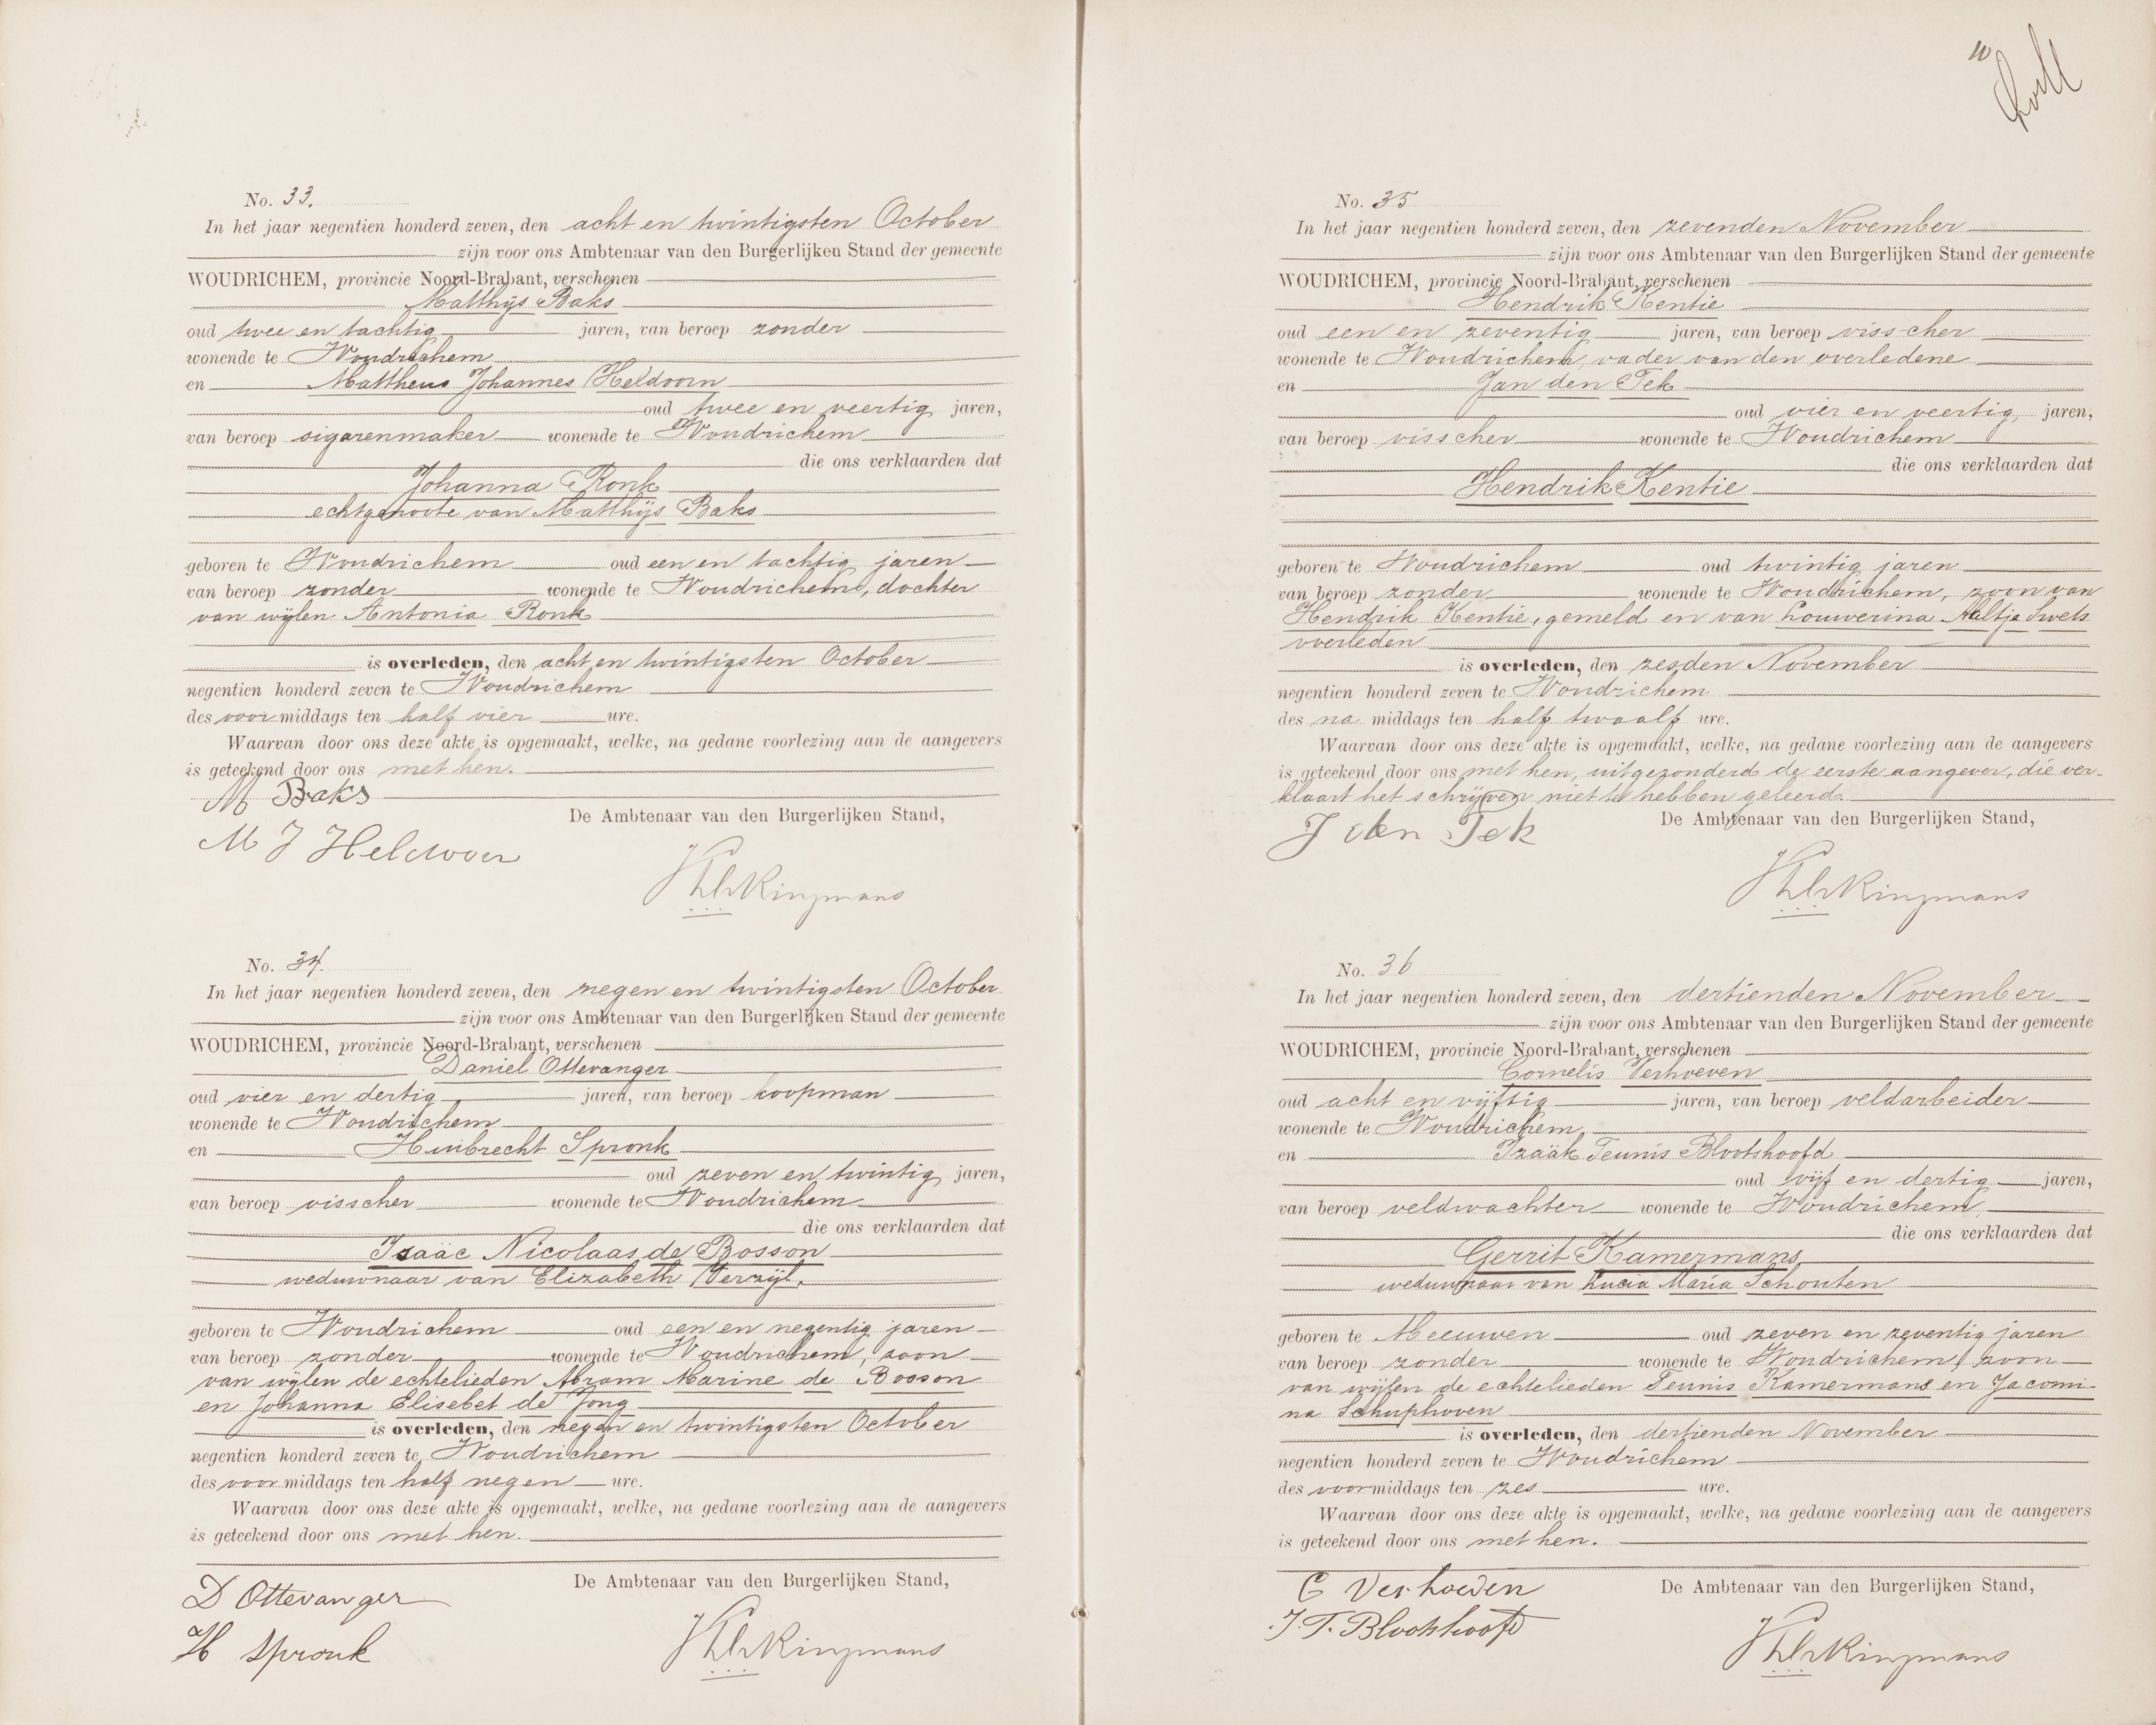 No. 33.
In het jaar negentien honderd zeven, den acht en twintigsten October
zijn voor ons Ambtenaar van den Burgerlijken Stand der gemeente
WOUDRICHEM, provincie Noord-Brabant, verschenen
Matthijs Baks
oud twee en tachtig jaren, van beroep zonder
wonende te Woudrichem
en Mattheus Johannes Heldoorn
oud twee en veertig jaren,
van beroep sigarenmaker wonende te Woudrichem
die ons verklaarden dat
Johanna Ronk
echtgenoote van Matthijs Baks
geboren te Woudrichem oud een en tachtig jaren
van beroep zonder wonende te Woudrichem, dochter
van wijlen Antonia Ronk
is overleden, den acht en twintigsten October
negentien honderd zeven te Woudrichem
des voormiddags ten half vier ure.
Waarvan door ons deze akte is opgemaakt, welke, na gedane voorlezing aan de aangevers
is geteekend door ons met hen.
M Baks
De Ambtenaar van den Burgerlijken Stand,
M J Heldoorn
No. 34.
In het jaar negentien honderd zeven, den negen en twintigsten October
zijn voor ons Ambtenaar van den Burgerlijken Stand der gemeente
WOUDRICHEM, provincie Noord-Brabant, verschenen
Daniel Ottevanger
oud vier en dertig jaren, van beroep koopman
wonende te Woudrichem
en Huibrecht Spronk
oud zeven en twintig jaren,
van beroep visscher wonende te Woudrichem
die ons verklaarden dat
Isaäc Nicolaas de Bosson
weduwnaar van Elizabeth Verzijl,
geboren te Woudrichem oud een en negentig jaren
van beroep zonder wonende te Woudrichem, zoon
van wijlen de echtelieden Abram Marine de Bosson
en Johanna Elisebet de Jong
is overleden, den negen en twintigsten October
negentien honderd zeven te Woudrichem
des voormiddags ten half negen ure.
Waarvan door ons deze akte is opgemaakt, welke, na gedane voorlezing aan de aangevers
is geteekend door ons met hen.
De Ambtenaar van den Burgerlijken Stand,
D Ottevanger
H Spronk
No. 35
In het jaar negentien honderd zeven, den zevenden November
zijn voor ons Ambtenaar van den Burgerlijken Stand der gemeente
WOUDRICHEM, provincie Noord-Brabant, verschenen
Hendrik Kentie
oud een en zeventig jaren, van beroep visscher
wonende te Woudrichem, vader van den overledene
en Jan den Tek
oud vier en veertig, jaren,
van beroep visscher wonende te Woudrichem
die ons verklaarden dat
Hendrik Kentie
geboren te Woudrichem oud twintig jaren
van beroep zonder wonende te Woudrichem, zoon van
Hendrik Kentie, gemeld en van Louwerina Aaltje Swets
overleden
is overleden, den zesden November
negentien honderd zeven te Woudrichem
des na middags ten half twaalf ure.
Waarvan door ons deze akte is opgemaakt, welke, na gedane voorlezing aan de aangevers
is geteekend door ons met hen, uitgezonderd de eerste aangever, die ver-
klaart het schrijven niet te hebben geleerd.
De Ambtenaar van den Burgerlijken Stand,
J den Tek
No. 36
In het jaar negentien honderd zeven, den dertienden November
zijn voor ons Ambtenaar van den Burgerlijken Stand der gemeente
WOUDRICHEM, provincie Noord-Brabant, verschenen
Cornelis Verhoeven
oud acht en vijftig jaren, van beroep veldarbeider
wonende te Woudrichem,
en Izaäk Teunis Blootshoofd
oud vijf en dertig jaren,
van beroep veldwachter wonende te Woudrichem
die ons verklaarden dat
Gerrit Kamermans
weduwnaar van Lucia Maria Schouten
geboren te Meeuwen oud zeven en zeventig jaren
van beroep zonder wonende te Woudrichem, zoon
van wijlen de echtelieden Teunis Kamermans en Jacomi-
na Schuphoven
is overleden, den dertienden November
negentien honderd zeven te Woudrichem
des voormiddags ten zes ure.
Waarvan door ons deze akte is opgemaakt, welke, na gedane voorlezing aan de aangevers
is geteekend door ons met hen.
C Verhoeven
De Ambtenaar van den Burgerlijken Stand,
I. T. Blootshoofd